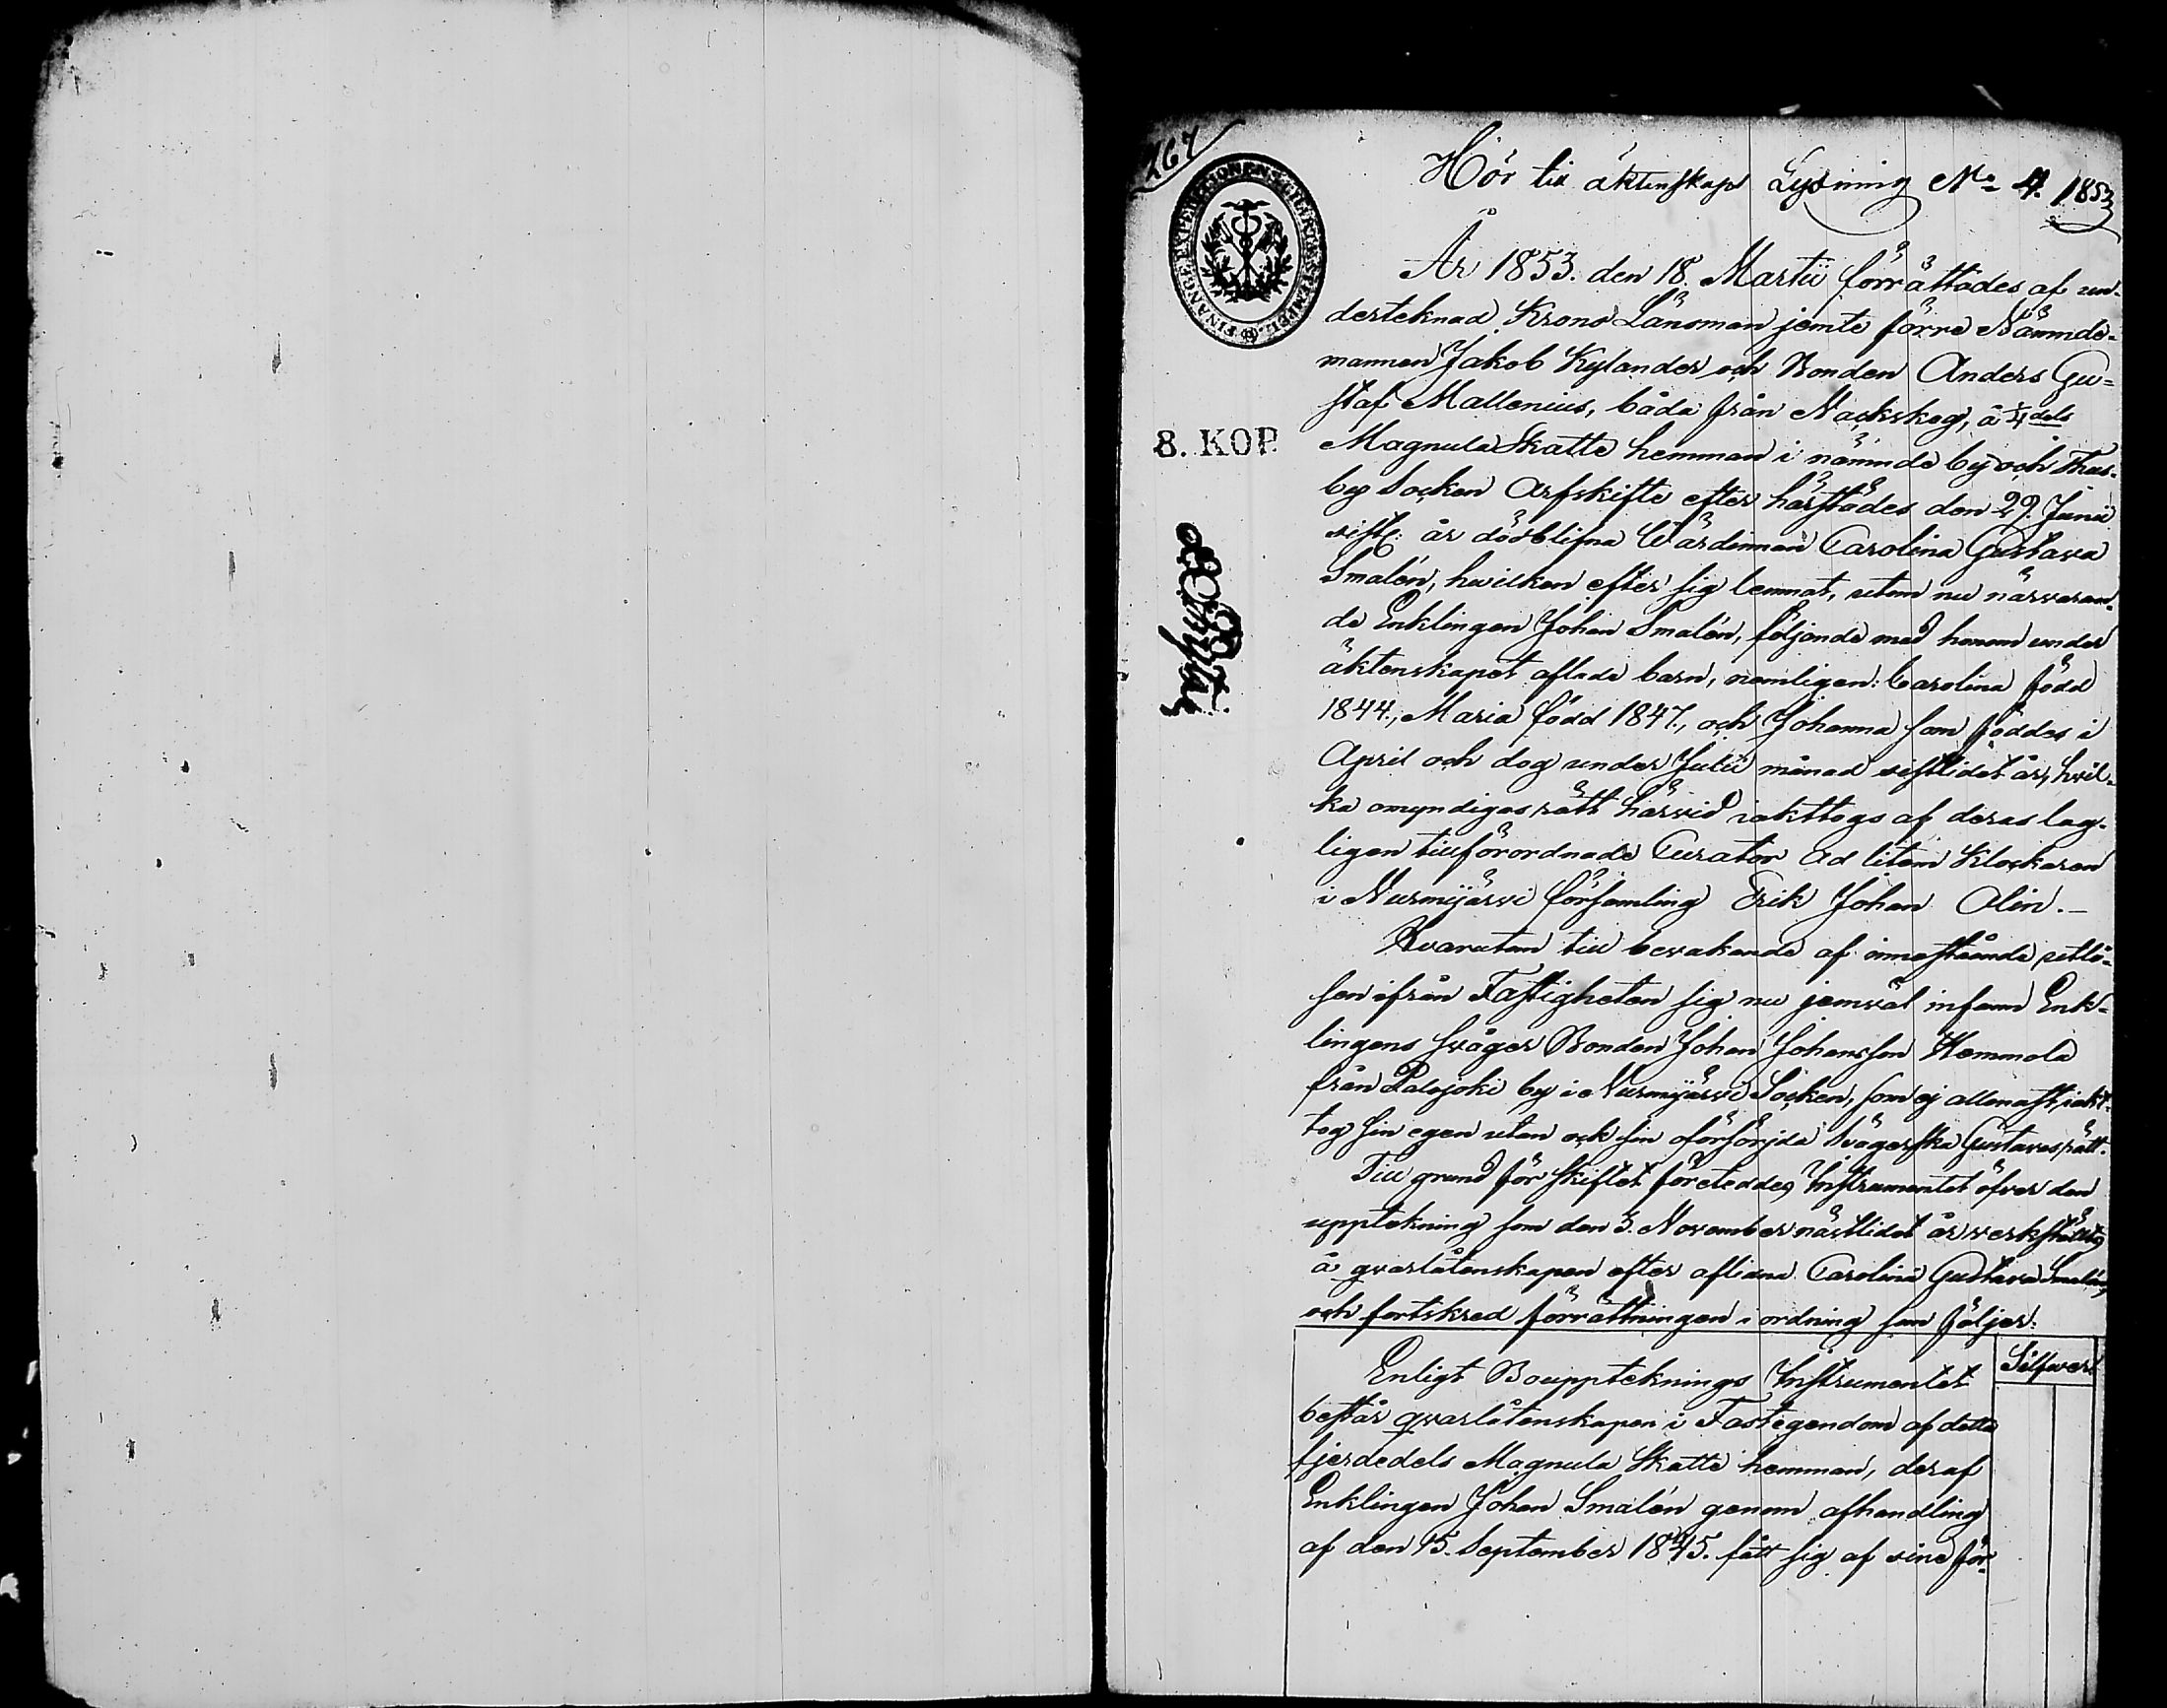 267
Hör till äktenskaps Lysning No 4. 1853
FINANCE EXPEDITIONENS CHARTÆ STEMPEL
8. KOP.
År 1853. den 18. Martii förrättades af un-
derteknad Krono Länsman jemte förre Nämnde-
mannen Jakob Kylander och Bonden Anders Gu-
staf Mallenius, båda från Nackskog, å 1/4dels
Magnula Skatte hemman i nämnde by och Thus-
by Socken Arfskifte efter härstädes den 29. Junii
sistl: år dödblifna Värdinnan Carolina Gustava
Smalén, hvilken efter sig lemnat, utom nu närvaran-
de Enklingen Johan Smalén, följande med honom under
äktenskapet aflade barn, nemligen: Carolina född
1844., Maria född 1847., och Johanna som föddes i
April och dog under Julii månad sistlidet år, hvil-
ka omyndigas rätt härvid iakttogs af deras lag-
ligen tillförordnade Curator ad litem Klockaren
i Nurmijärvi församling Erik Johan Olin.—
Hvarutom till bevakande af innestående utlö-
sen ifrån Fastigheten sig nu jemväl infann Enk-
lingens svåger Bonden Johan Johansson Hemmola
från Palojoki by i Nurmijärvi Socken, som ej allenast iakt-
tog sin egen utan ock sin oförsörjda Svägerska Gustavas rätt.
Till grund för skiftet företeddes Instrumentet öfver den
upptekning som den 3. November nästlidet år verkstäldes
å qvarlåtenskapen efter aflidna Carolina Gustava Smalén,
och fortskred förrättningen i ordning som följer:
Silfver
Enligt Bouppteknings Instrumentet
består qvarlåtenskapen i Fast egendom af detta
fjerdedels Magnula Skatte hemman, deraf
Enklingen Johan Smalén genom afhandling
af den 15. September 1845. fått sig af sine för-